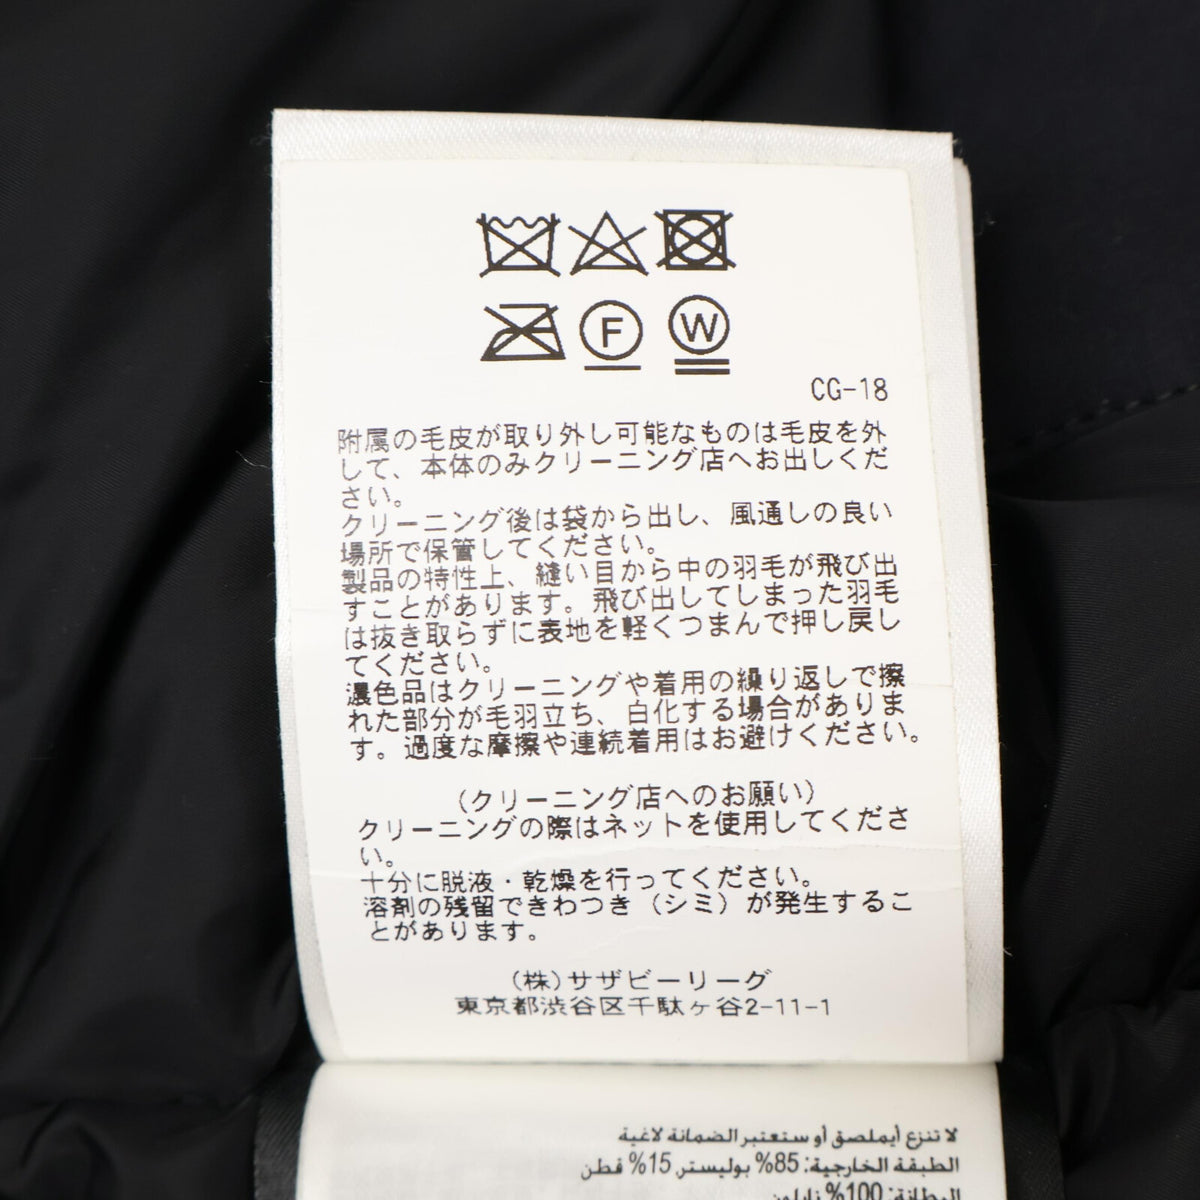 F W
CG-18
附属の毛皮が取り外し可能なものは毛皮を外
して、本体のみクリーニング店へお出しくだ
さい。
クリーニング後は袋から出し、風通しの良い
場所で保管してください。
製品の特性上、縫い目から中の羽毛が飛び出
すことがあります。飛び出してしまった羽毛
は抜き取らずに表地を軽くつまんで押し戻し
てください。
濃色品はクリーニングや着用の繰り返しで擦
れた部分が毛羽立ち、白化する場合がありま
す。過度な摩擦や連続着用はお避けください。
(クリーニング店へのお願い)
クリーニングの際はネットを使用してくださ
い。
十分に脱液・乾燥を行ってください。
溶剤の残留できわつき（シミ）が発生するこ
とがあります。
(株)サザビーリーグ
東京都渋谷区千駄ヶ谷2-11-1
لا تنزع أيملصق أو ستعتبر الضمانة لاغية
الطبقة الخارجية: 85% بوليستر, 15% قطن
البطانة: 100% نايلون